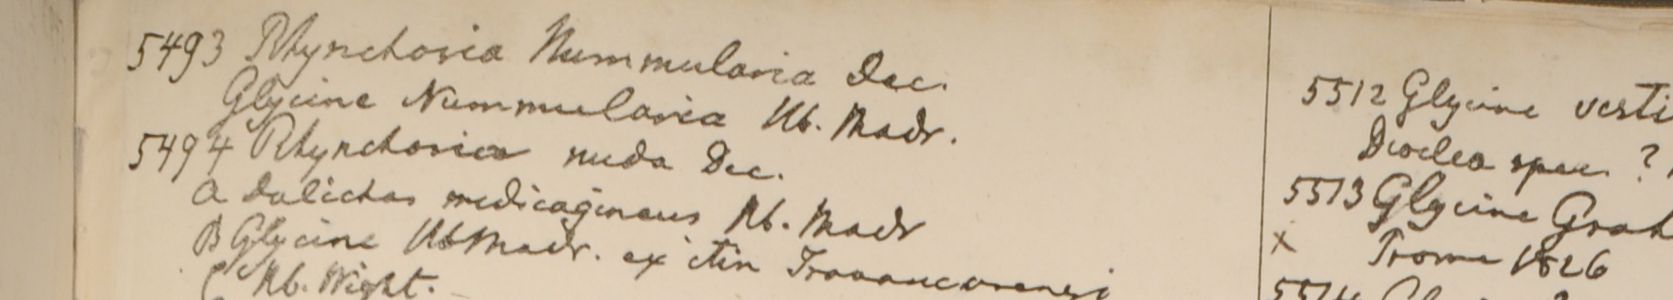 5493 Rhynchosia Nummularia Dec.
Glycine Nummularia Hb. Madr.
5494 Rhynchosia nuda Dec.
A Dolichos medicagineus Hb. Madr
B Glycine Hb Madr. ex itin Travancorensi
C Hb. Wight.
5512 Glycine vesti
Dioclea spec. ?
5513 Glycine Grah
x Prome 1826
5514